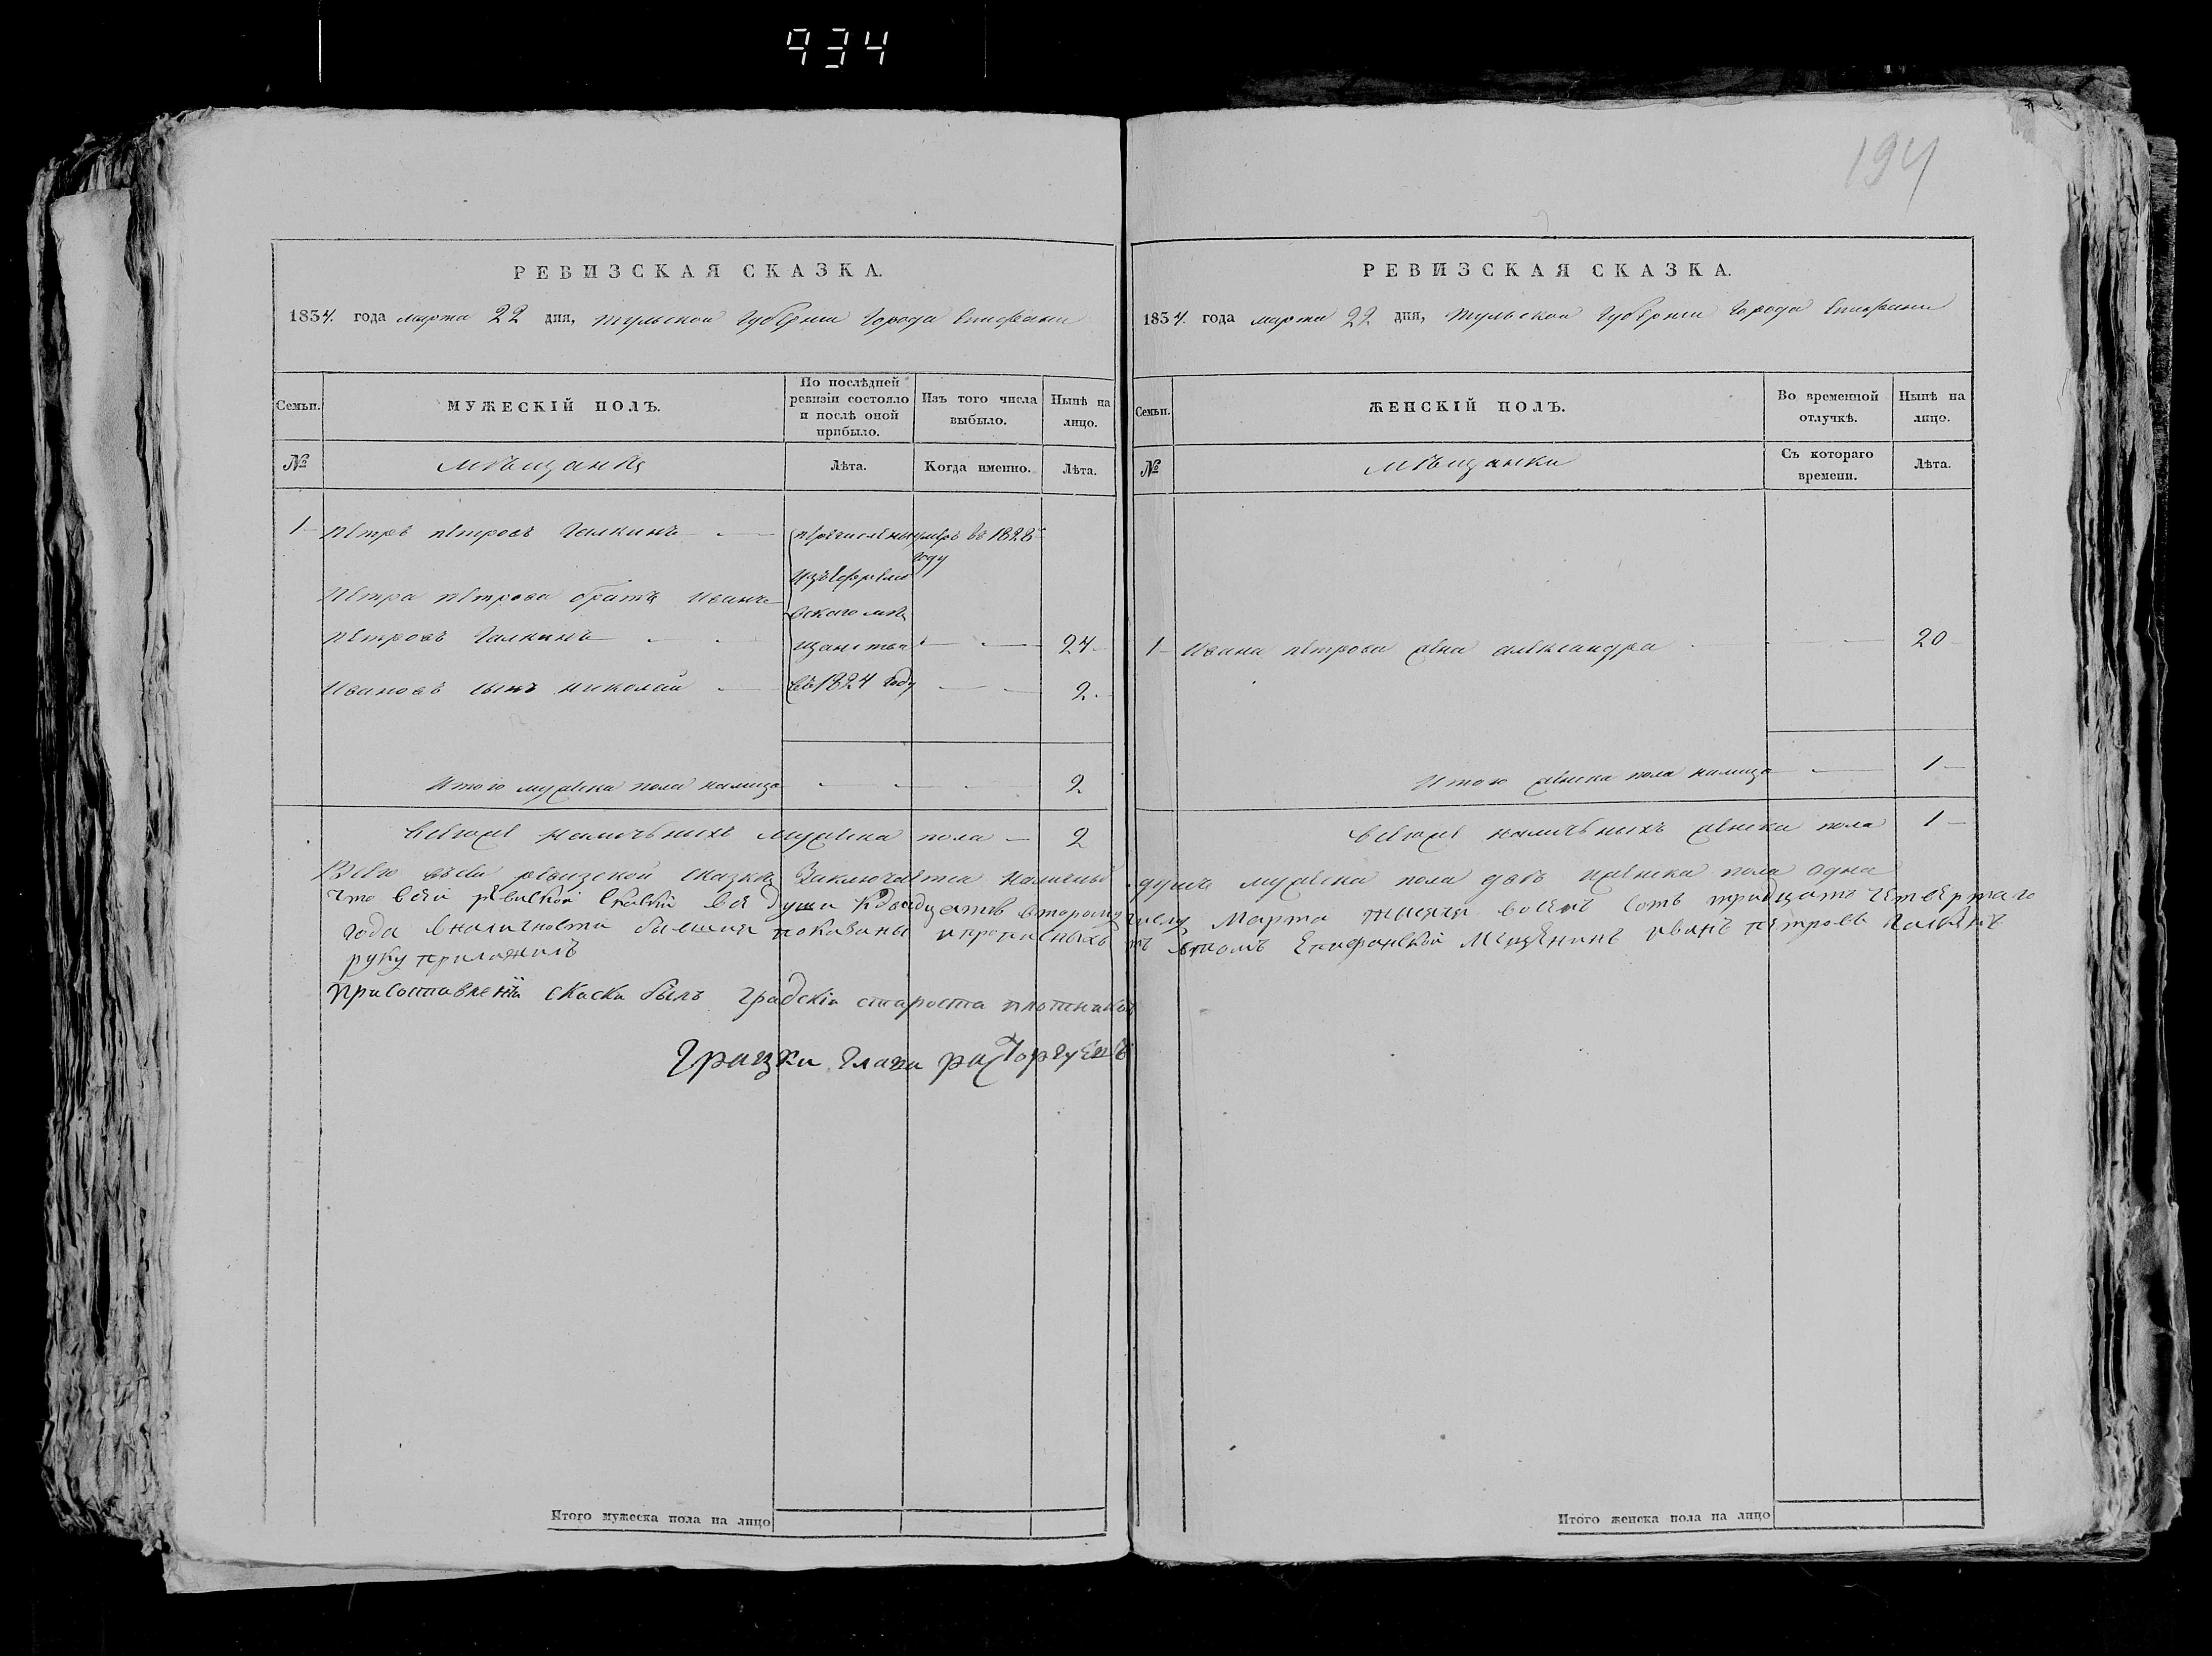 934
194
РЕВИЗСКАЯ СКАЗКА.
1834. года марта 22 дня, Тульской Губернии Города Епифани
Семьи.
МУЖЕСКІЙ ПОЛЪ.
По послѣдней ревизіи состояло и послѣ оной прибыло.
Изъ того числа выбыло.
Нынѣ на лицо.
№
мѣщанѣ
Лѣта.
Когда именно.
Лѣта.
1 Петръ петровъ Галкинъ
перечислены
умеръ въ 1828
году
изъ Ефремо
Петра петрова братъ Иванъ
вского мѣ
петровъ Галкинъ
щанства
24
Ивановъ сынъ николай
въ 1824 году
2
Итого мужеска пола налицо 2
всегоже наличьныхъ мужеска пола 2
РЕВИЗСКАЯ СКАЗКА.
1834. года марта 22 дня, Тульской Губернии Города Епифани
Семьи.
ЖЕНСКІЙ ПОЛЪ.
Во временной отлучкѣ.
Нынѣ на лицо.
№
мѣщанки
Съ котораго времени.
Лѣта.
1 Ивана петрова жена александра 20
Итого женска пола налицо 1
всегоже наличьныхъ женска пола 1
Всего всеи ревизской сказкѣ Заключается наличныхъ душъ мужеска пола двѣ иженска пола одна
Что всеи ревиской скаски все души кдвадцать второму числу Марта тысяча восемь сотъ тридцать четвертаго
года вналичности бывшия показаны ипрописныхъ нѣтъ втомъ Епифанской Мещенинъ иванъ петровъ Галкинъ
руку приложилъ
присоставлении скаски былъ градскіи староста плотниковъ
Грацки глава расторгуевъ
Итого мужеска пола на лицо
Итого женска пола на лицо